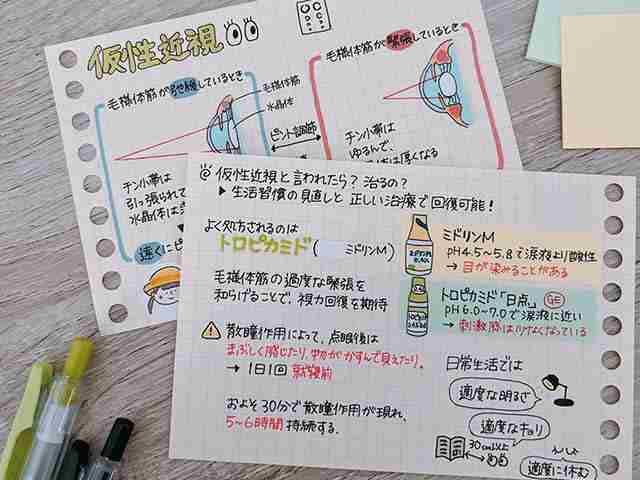 仮性近視
毛様体筋が弛緩しているとき
毛様体筋
水晶体
ピント調節
チン小帯は
引っ張られて
水晶体は
遠くにピ
毛様体筋が緊張しているとき
チン小帯は
ゆるんで、
は厚くなる
仮性近視と言われたら?治るの?
▶生活習慣の見直しと正しい治療で回復可能!
よく処方されるのは
トロピカミド( ミドリンM)
毛様体筋の過度な緊張を
和らげることで、視力回復を期待
散瞳作用によって、点眼後は
まぶしく感じたり、物がかすんで見えたり。
→1日1回 就寝前
およそ30分で散瞳作用が現れ、
5~6時間持続する.
ミドリンM
pH4.5~5.8で涙液より酸性
→目が染みることがある
トロピカミド「日点」 GE
pH6.0~7.0で涙液に近い
→刺激感は少なくなっている
日常生活では
適度な明るさ
適度なキョリ
30cm以上
適度に休む